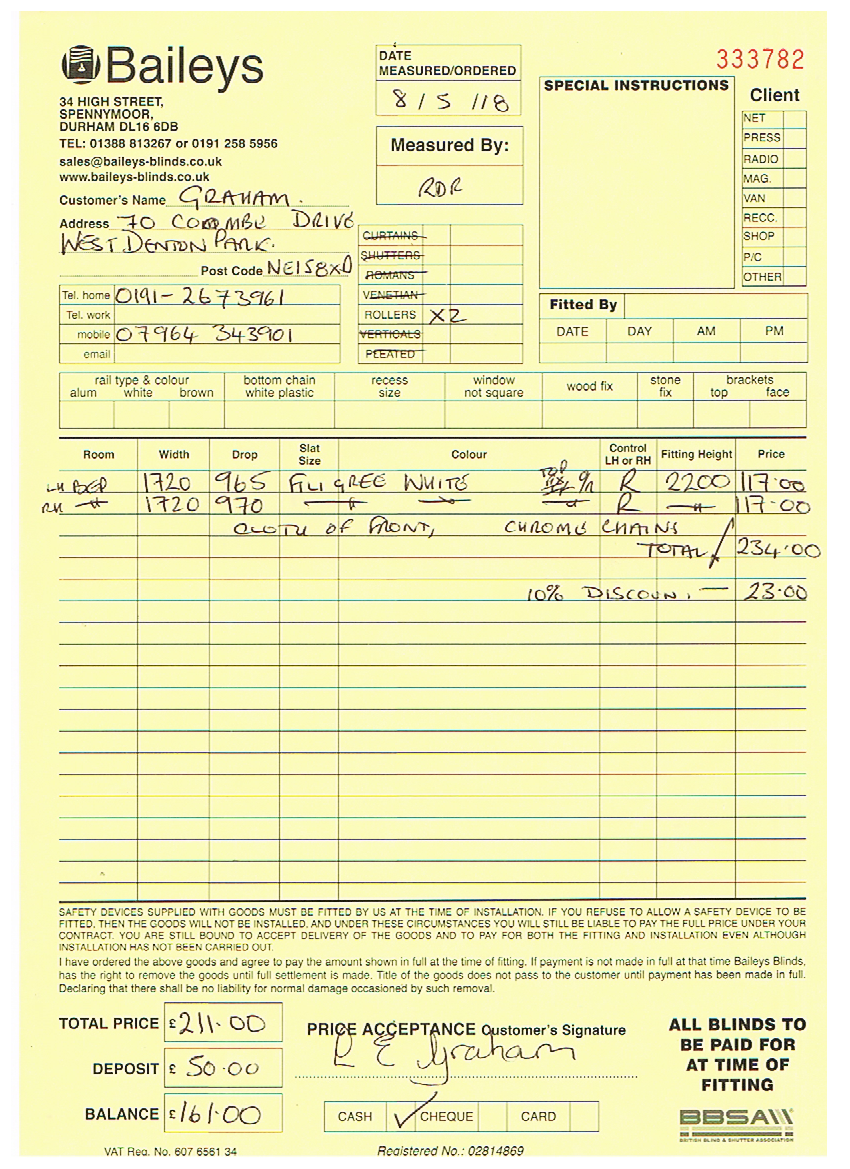 Baileys
34 HIGH STREET,
SPENNYMOOR,
DURHAM DL16 6DB
TEL: 01388 813267 or 0191 258 5956
sales@baileys-blinds.co.uk
www.baileys-blinds.co.uk
DATE
MEASURED/ORDERED
8/5/18
Measured By:
RDR
333782
SPECIAL INSTRUCTIONS
Client
NET
PRESS
RADIO
MAG.
VAN
RECC.
SHOP
P/C
OTHER
Customer's Name GRAHAM.
Address 70 COOMBE DRIVE
WEST DENTON PARK.
Post Code NE15 8XD
Tel. home 0191-2673961
Tel. work
mobile 07964 343901
email
CURTAINS
SHUTTERS
ROMANS
VENETIAN
ROLLERS X2
VERTICALS
PLEATED
Fitted By
DATE DAY AM PM
rail type & colour
alum white brown
bottom chain
white plastic
recess
size
window
not square
wood fix
stone
fix
brackets
top face
Room Width Drop Slat Size Colour Control LH or RH Fitting Height Price
LH BED 1720 965 FILIGREE WHITE TOP R 2200 117.00
RH 1720 970 R 117.00
CLOTH OF FRONT, CHROME CHAINS
TOTAL 234.00
10% DISCOUN. — 23.00
SAFETY DEVICES SUPPLIED WITH GOODS MUST BE FITTED BY US AT THE TIME OF INSTALLATION. IF YOU REFUSE TO ALLOW A SAFETY DEVICE TO BE
FITTED, THEN THE GOODS WILL NOT BE INSTALLED, AND UNDER THESE CIRCUMSTANCES YOU WILL STILL BE LIABLE TO PAY THE FULL PRICE UNDER YOUR
CONTRACT. YOU ARE STILL BOUND TO ACCEPT DELIVERY OF THE GOODS AND TO PAY FOR BOTH THE FITTING AND INSTALLATION EVEN ALTHOUGH
INSTALLATION HAS NOT BEEN CARRIED OUT.
I have ordered the above goods and agree to pay the amount shown in full at the time of fitting. If payment is not made in full at that time Baileys Blinds,
has the right to remove the goods until full settlement is made. Title of the goods does not pass to the customer until payment has been made in full.
Declaring that there shall be no liability for normal damage occasioned by such removal.
TOTAL PRICE £211.00
DEPOSIT £50.00
BALANCE £161.00
PRICE ACCEPTANCE Customer's Signature
R E Graham
CASH ✓ CHEQUE CARD
ALL BLINDS TO
BE PAID FOR
AT TIME OF
FITTING
BBSA
BRITISH BLIND & SHUTTER ASSOCIATION
VAT Reg. No. 607 6561 34
Registered No.: 02814869